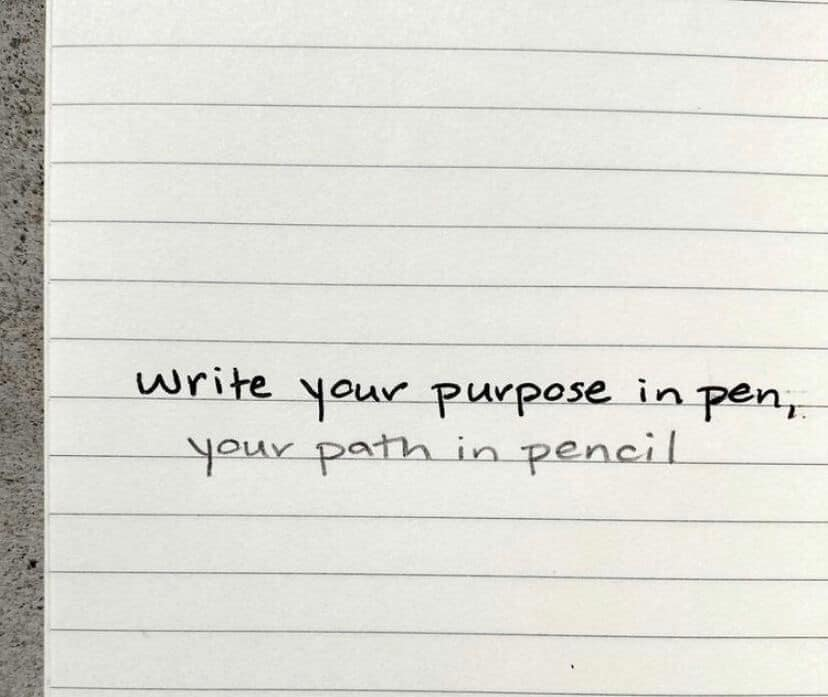 Write your purpose in pen,
your path in pencil